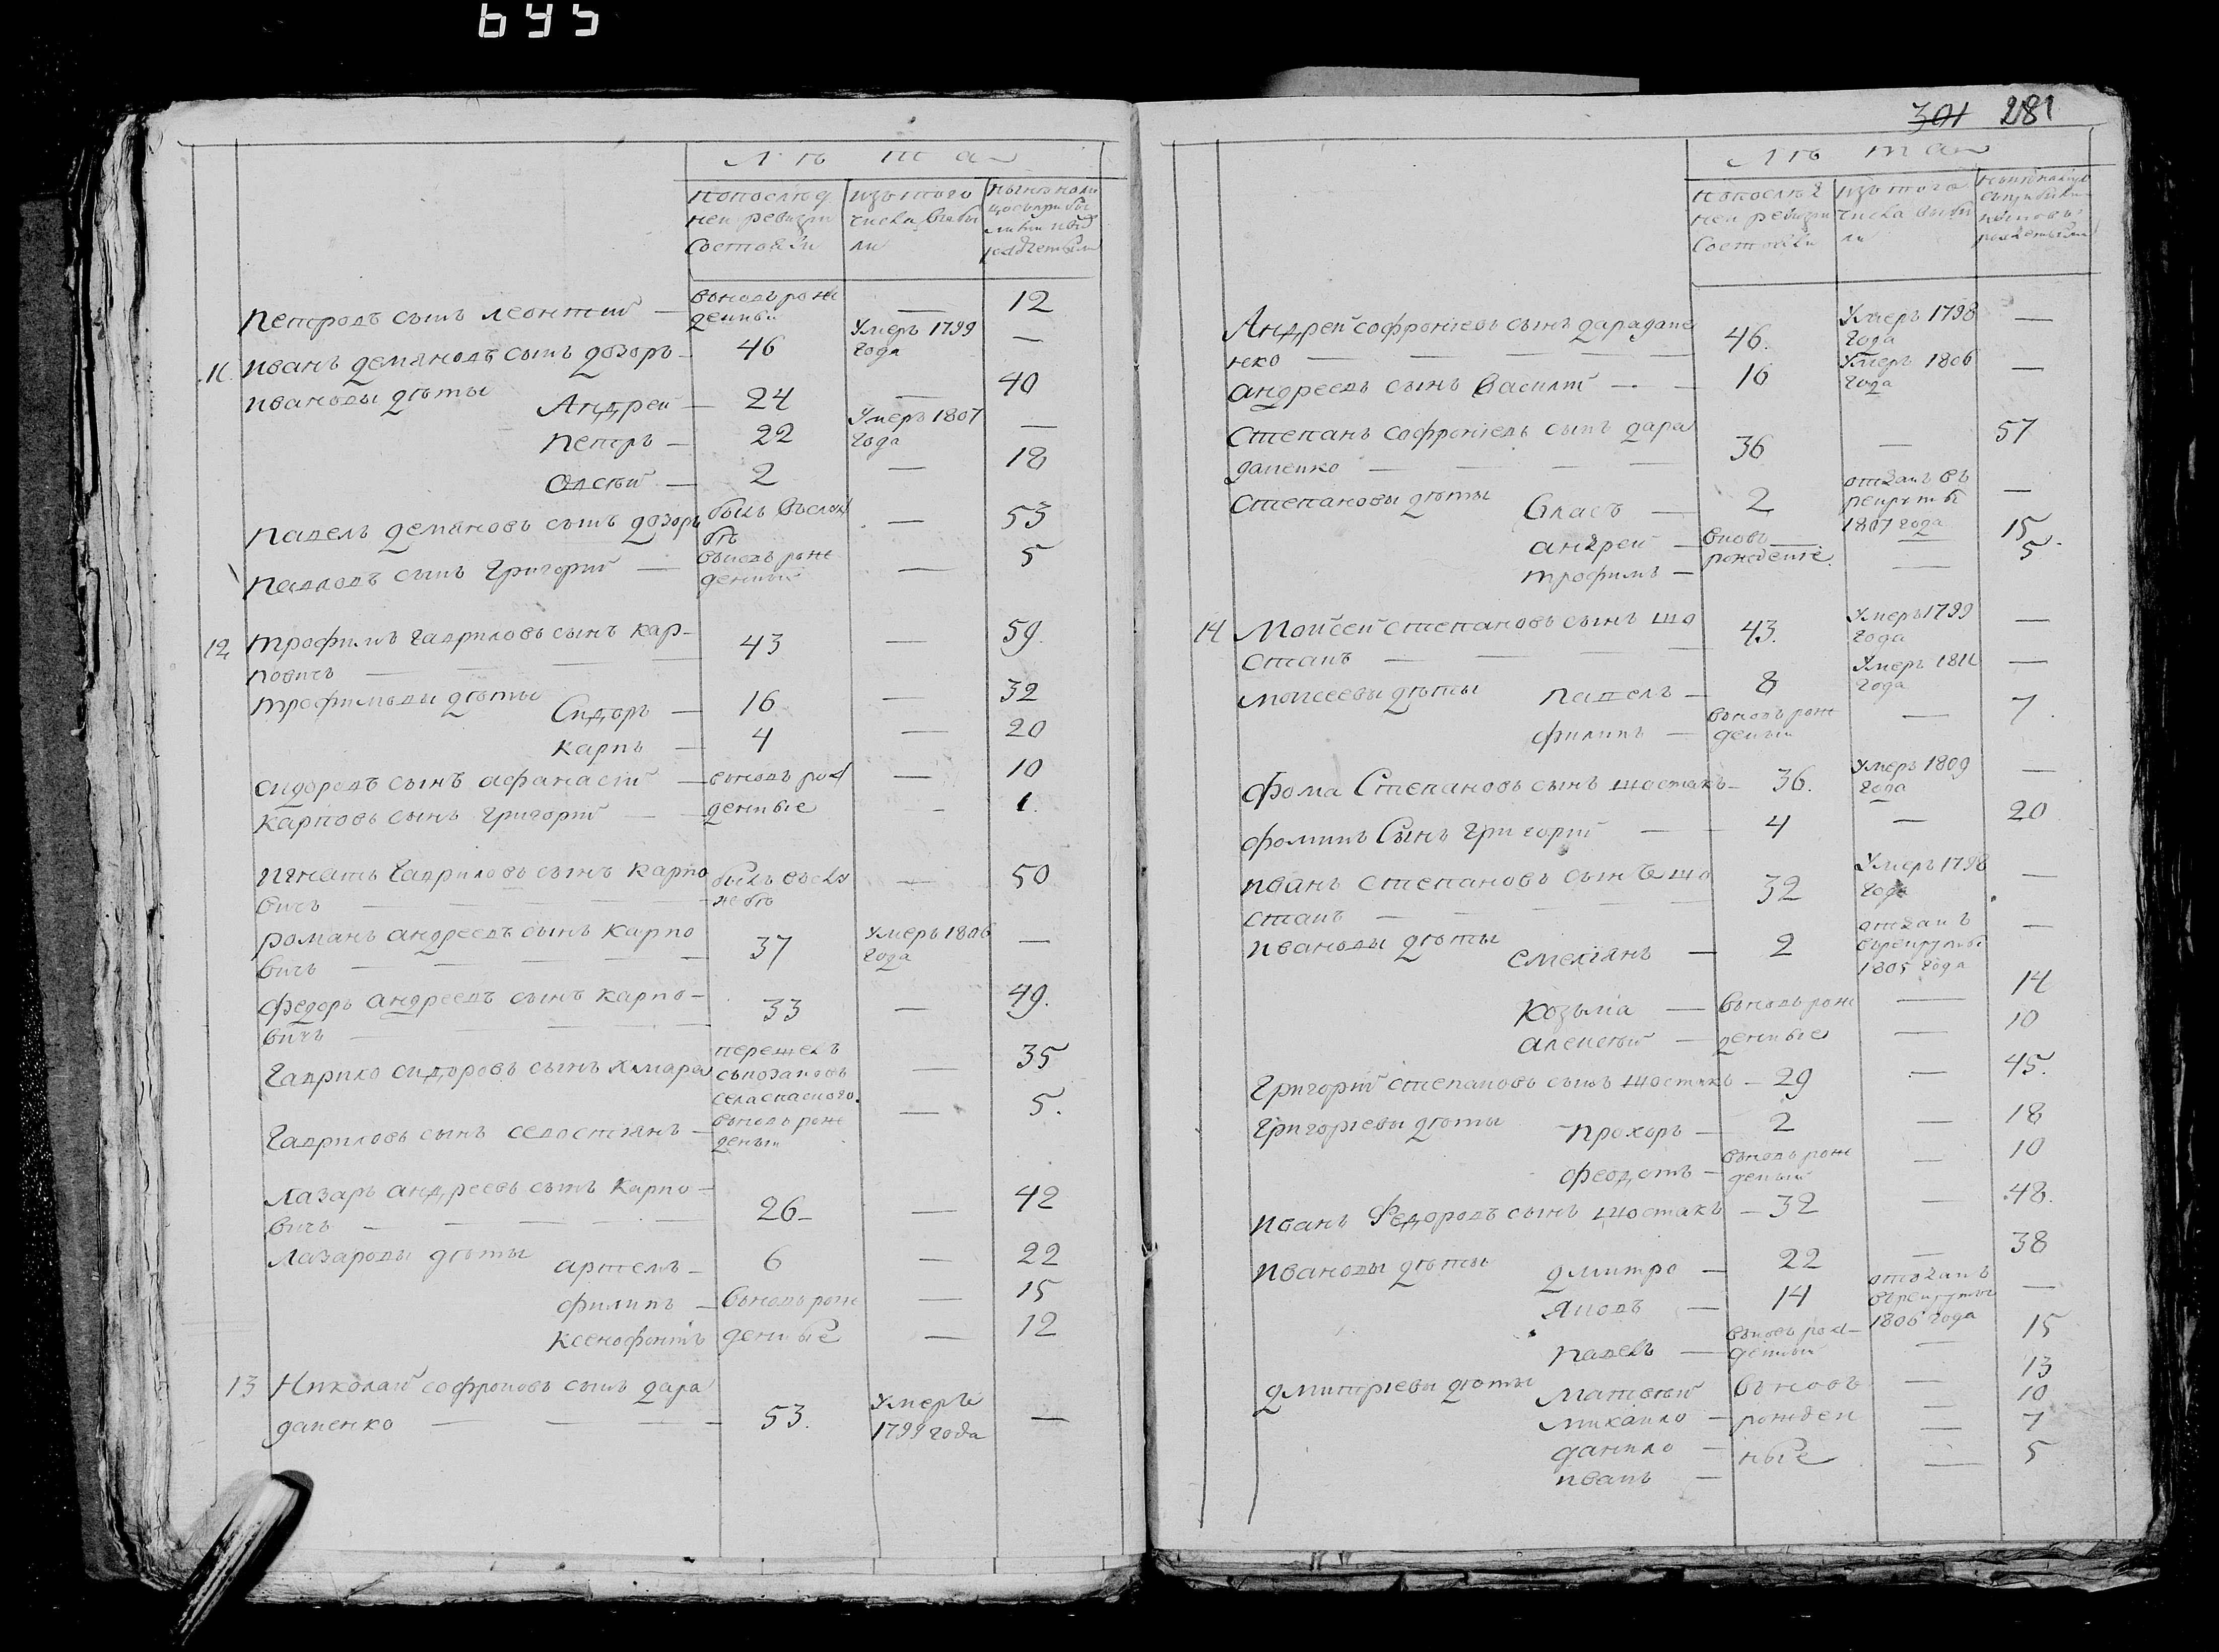 695
Лѣта
по послѣд
ней ревизіи
состояли
изъ того
числа выбы
ли
Петровъ сынъ леонтий —
вновь рож
денный
—
12
11. иванъ демяновъ сынъ дозоръ —
46
Умеръ 1799
года
—
ивановы дѣты
Андрей —
24
—
40
Петръ —
22
Умеръ 1807
года
—
2
—
18
павелъ демяновъ сынъ дозоръ
—
53
павловъ сынъ григорий —
вновь рож
денный
—
5
12 трофимъ гавриловъ сынъ кар-
повичъ —
43
—
59.
трофимовы дѣты
Сидоръ —
16
—
32
карпъ —
4
—
20
сидоровъ сынъ афанасий —
вновь рож
—
10
карповъ сынъ григорий —
денные
-
1.
игнатъ гавриловъ сынъ карпо
вичъ —
—
50
романъ андреевъ сынъ карпо
вичъ —
37
Умеръ 1806
года
—
федоръ андреевъ сынъ карпо-
вичъ —
33
—
49.
гаврило сидоровъ сынъ хмара
перешелъ
села спаского.
—
35
гавриловъ сынъ севостіянъ —
вновь рож
деный
—
5.
лазаръ андреевъ сынъ карпо-
вичъ —
26-
—
42
лазаровы дѣты
артемъ —
6
—
22
филипъ —
вновь рож
—
15
ксенофонтъ
денные
—
12
13 Николай софроновъ сынъ дара
даненко —
53.
Умеръ
1799 года
—
301 281
Лѣта
по послѣд
ней ревизіи
состояли
изъ того
числа выбы
ли
Андрей софроніевъ сынъ дарадане
нко —
46.
Умеръ 1798
года
—
андреевъ сынъ василий —
16
Умеръ 1806
года
—
Степанъ софроніевъ сынъ дара
даненко —
36
—
57
Степановы дѣты
Власъ —
2
отданъ въ
рекруты
1807 года
—
андрей —
вновь
—
15.
трофимъ —
рожденые.
—
5
14 Мойсей степановъ сынъ шо
стакъ —
43.
Умеръ 1799
года
—
моисеевы дѣты
павелъ —
8
Умеръ 1811
года
—
филипъ —
вновь рож
деный
—
7.
Фома Степановъ сынъ шостакъ —
36.
Умеръ 1809
года
—
фоминъ Сынъ григорий —
4
—
20
иванъ степановъ сынъ шо
стакъ —
32
Умеръ 1798
года
—
ивановы дѣты
емеліянъ —
2
отданъ
въ рекруты
1805 года
—
козьма —
вновь рож
—
14
алексий —
денные
—
10
григорий степановъ сынъ шостакъ —
29
—
45.
григоріевы дѣты
прохоръ —
2
—
18
феодотъ —
вновь рож
деный
—
10
иванъ Федоровъ сынъ шостакъ —
32
—
48.
ивановы дѣты
дмитро —
22
—
38
яковъ —
14
отданъ
въ рекруты
1806 года
—
павелъ —
вновь рож-
деный
—
15
дмитріевы дѣты
матвий
вновь
—
13
михаило —
рожден
—
10
данило —
ные
—
7
иванъ —
—
5